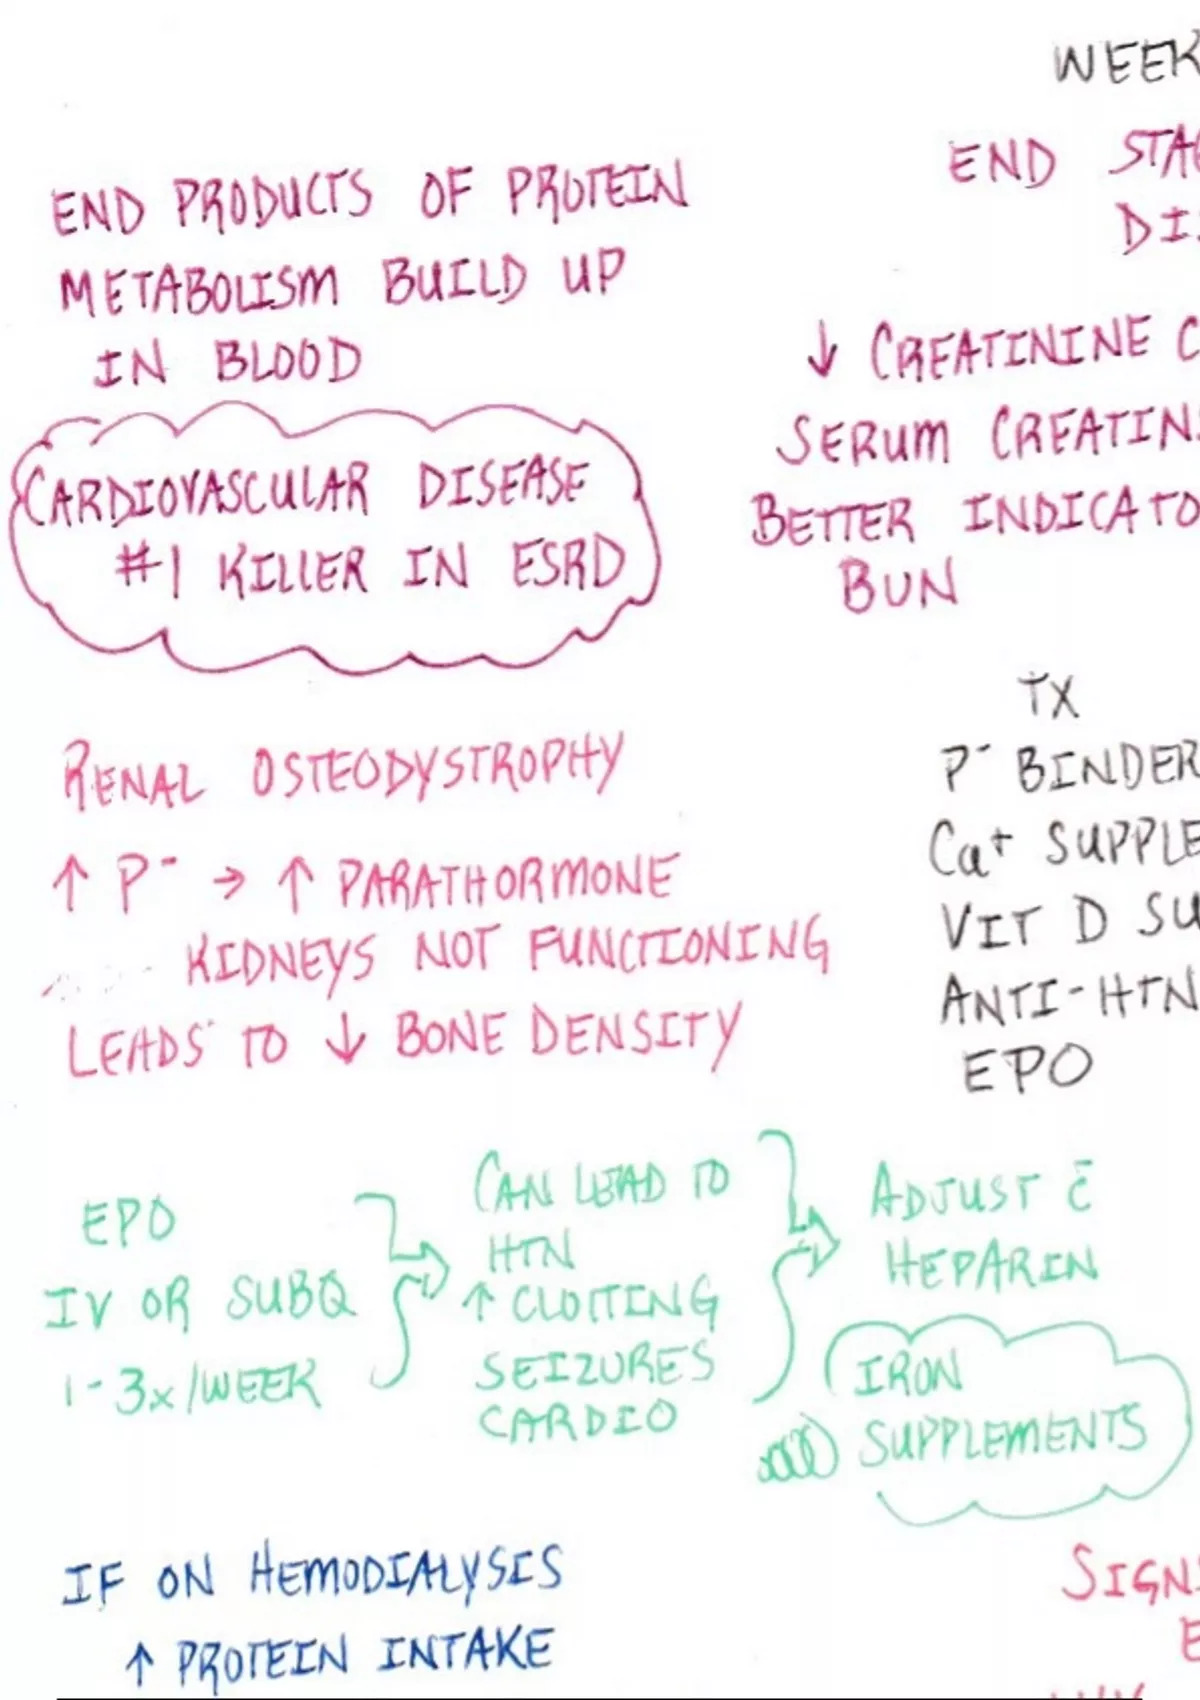 WEEK
END STAG
DIS
END PRODUCTS OF PROTEIN
METABOLISM BUILD UP
IN BLOOD
CARDIOVASCULAR DISEASE
#1 KILLER IN ESRD
↓ CREATININE C
SERUM CREATIN
BETTER INDICATO
BUN
RENAL OSTEODYSTROPHY
↑ P⁻ → ↑ PARATHORMONE
KIDNEYS NOT FUNCTIONING
LEADS TO ↓ BONE DENSITY
TX
P⁻ BINDER
Ca⁺ SUPPLE
VIT D SU
ANTI-HTN
EPO
EPO
IV OR SUBQ
1-3x/WEEK
CAN LEAD TO
HTN
↑ CLOTTING
SEIZURES
CARDIO
ADJUST c̄
HEPARIN
IRON
SUPPLEMENTS
IF ON HEMODIALYSIS
↑ PROTEIN INTAKE
SIGNS
E